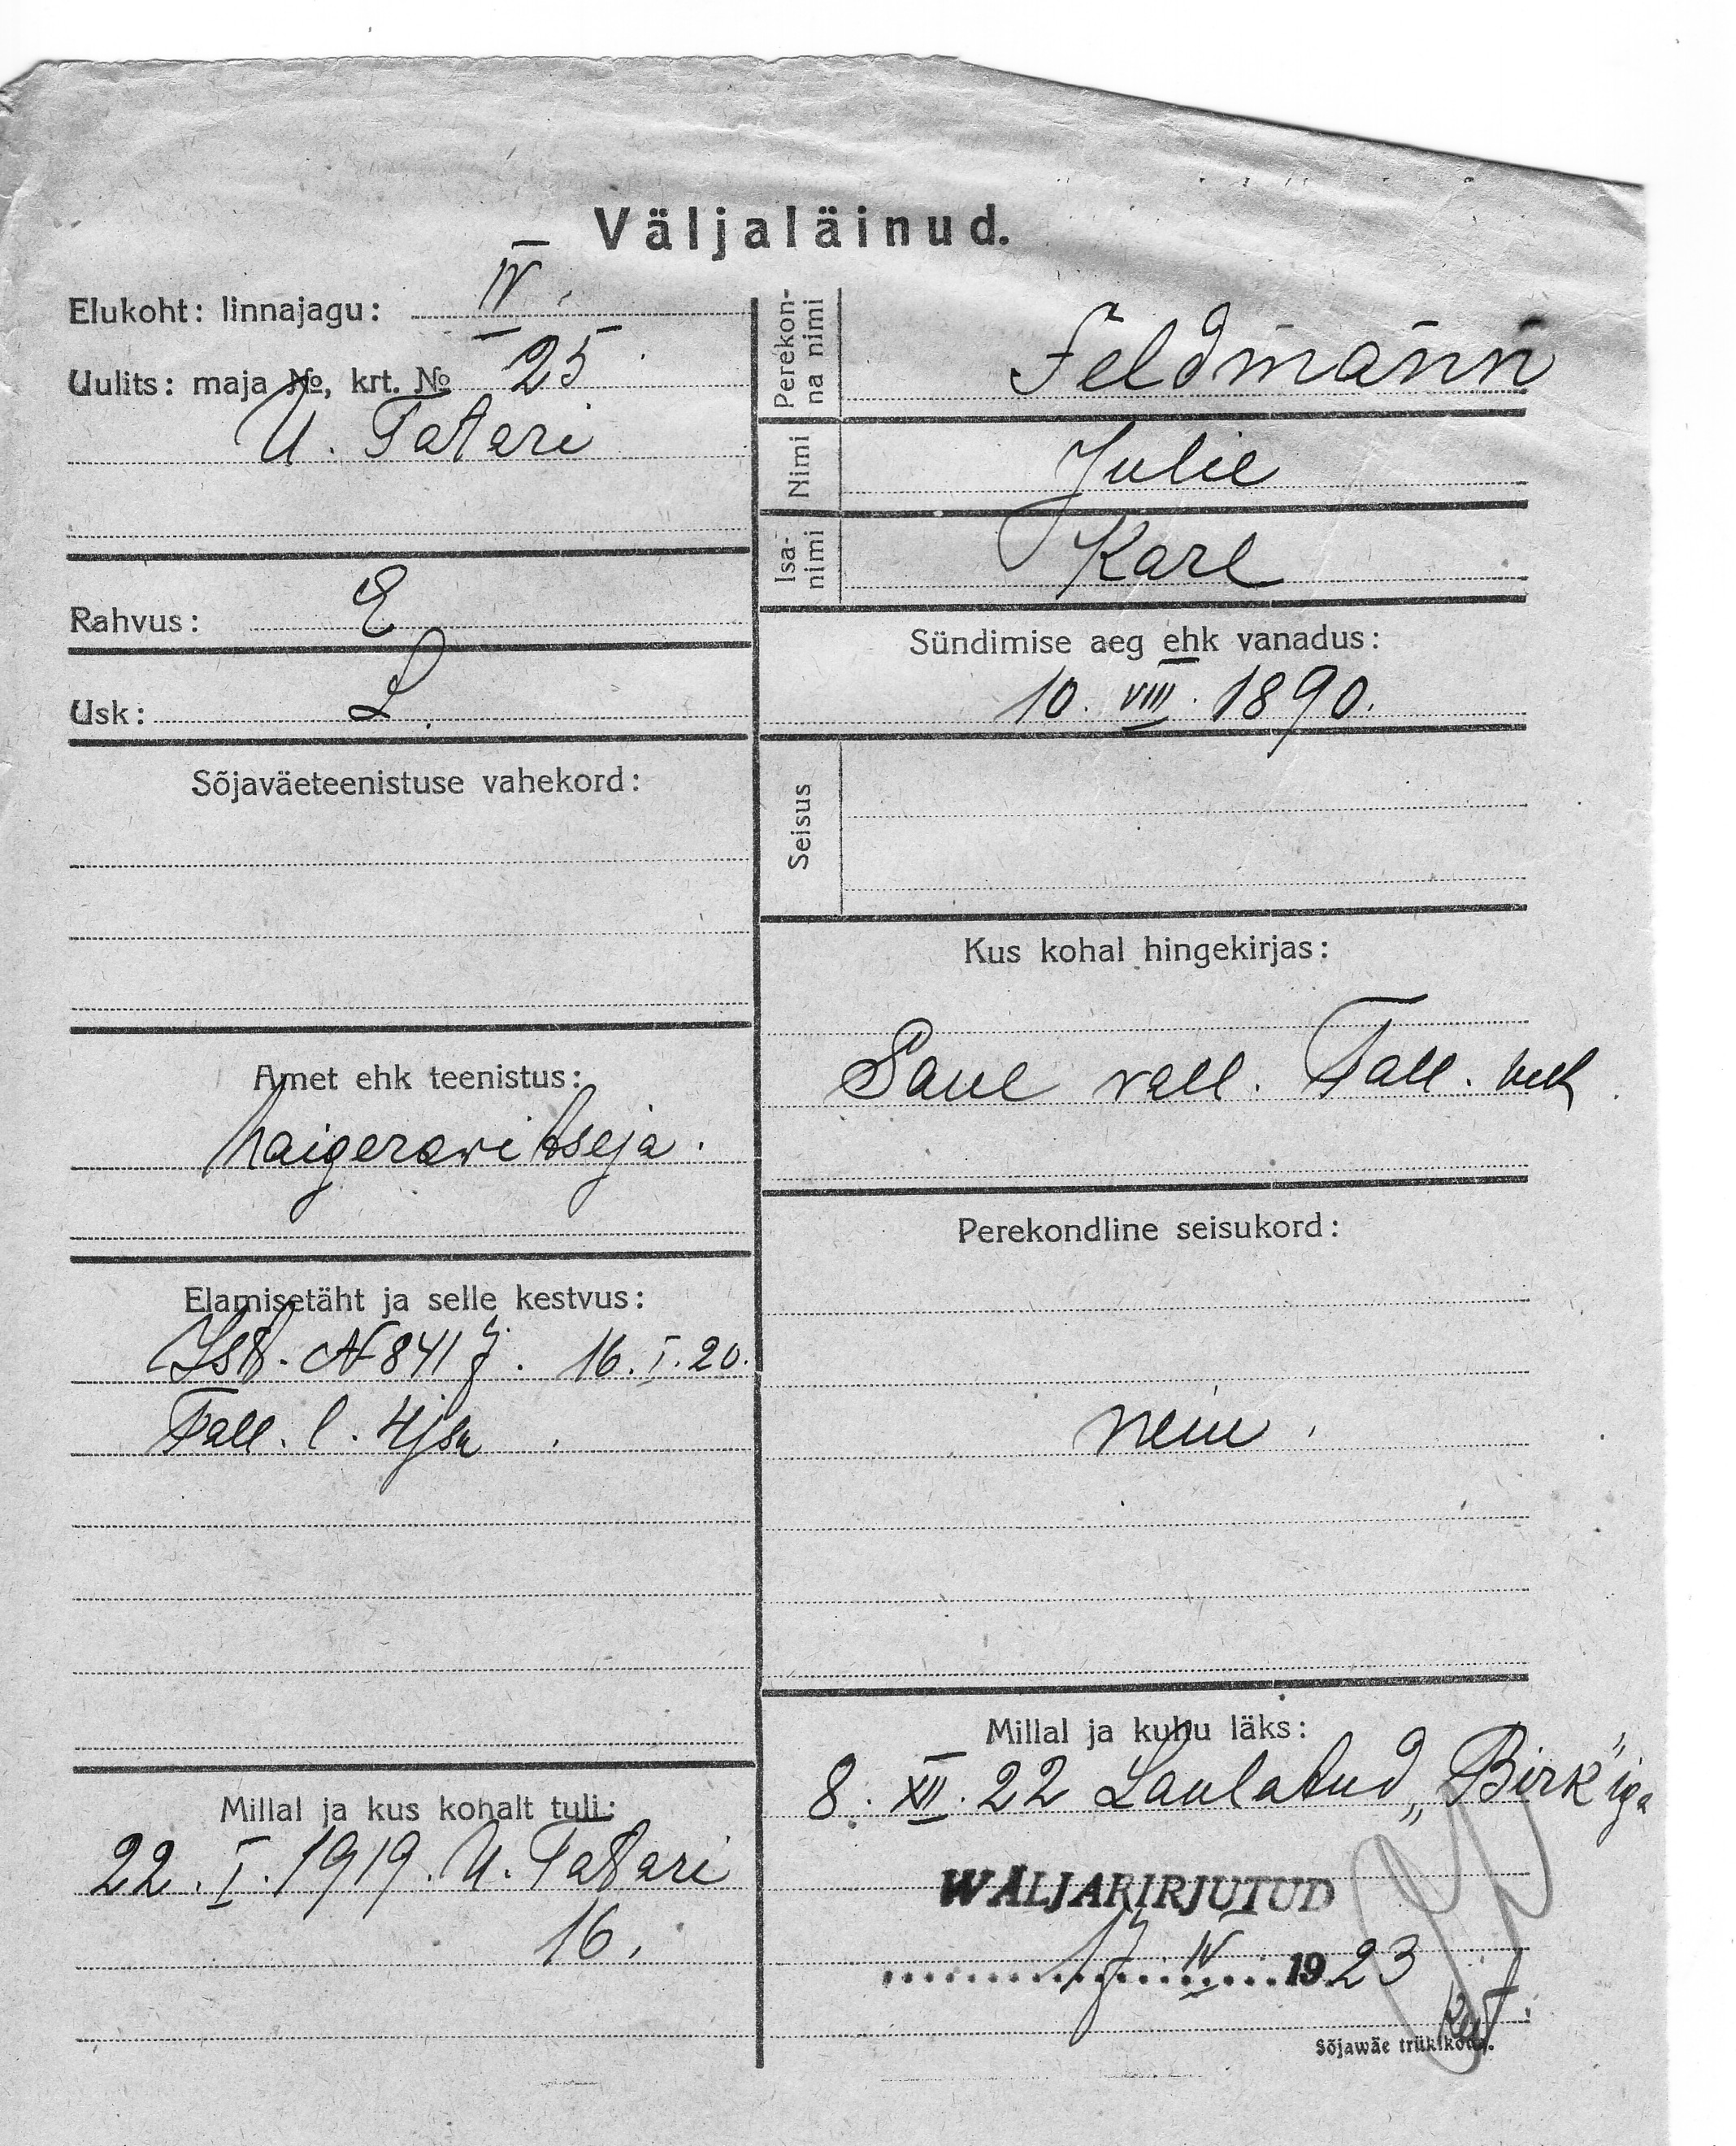 Väljaläinud.
Elukoht: linnajagu: IV.
Uulits: maja №, krt. № 25
U. Tatari
Rahvus: E
Usk: L.
Sõjaväeteenistuse vahekord:
Amet ehk teenistus:
haigeravitseja.
Elamisetäht ja selle kestvus:
Ist. N 8417. 16. I. 20.
Tall. l. 4 jsk
Millal ja kus kohalt tuli:
22. I. 1919. U. Tatari
16.
Perekonna nimi Feldmann
Nimi Julie
Isanimi Karl
Sündimise aeg ehk vanadus:
10. VIII. 1890.
Seisus
Kus kohal hingekirjas:
vall. Tall.
Perekondline seisukord:
neiu.
Millal ja kuhu läks:
8. XII. 22 Laulatud „Birk"iga
WÄLJAKIRJUTUD
17 IV 1923
Sõjawäe trükikoda.